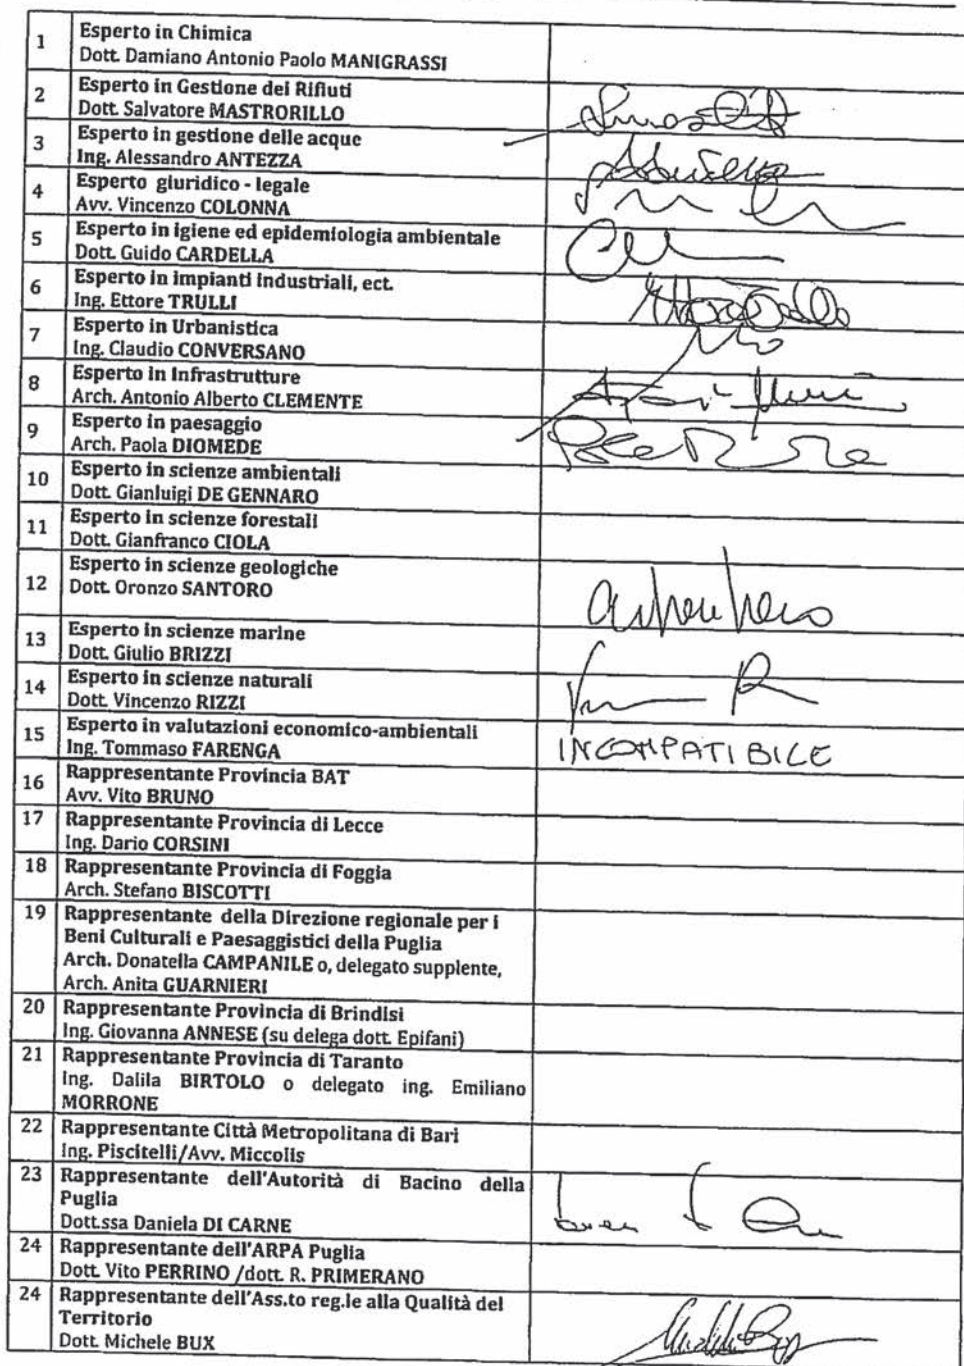 1
Esperto in Chimica
Dott. Damiano Antonio Paolo MANIGRASSI
2
Esperto in Gestione dei Rifiuti
Dott. Salvatore MASTRORILLO
3
Esperto in gestione delle acque
Ing. Alessandro ANTEZZA
4
Esperto giuridico - legale
Avv. Vincenzo COLONNA
5
Esperto in igiene ed epidemiologia ambientale
Dott. Guido CARDELLA
6
Esperto in impianti industriali, ect.
Ing. Ettore TRULLI
7
Esperto in Urbanistica
Ing. Claudio CONVERSANO
8
Esperto in Infrastrutture
Arch. Antonio Alberto CLEMENTE
9
Esperto in paesaggio
Arch. Paola DIOMEDE
10
Esperto in scienze ambientali
Dott. Gianluigi DE GENNARO
11
Esperto in scienze forestali
Dott. Gianfranco CIOLA
12
Esperto in scienze geologiche
Dott. Oronzo SANTORO
13
Esperto in scienze marine
Dott. Giulio BRIZZI
14
Esperto in scienze naturali
Dott. Vincenzo RIZZI
15
Esperto in valutazioni economico-ambientali
Ing. Tommaso FARENGA
INCOMPATIBILE
16
Rappresentante Provincia BAT
Avv. Vito BRUNO
17
Rappresentante Provincia di Lecce
Ing. Dario CORSINI
18
Rappresentante Provincia di Foggia
Arch. Stefano BISCOTTI
19
Rappresentante della Direzione regionale per i
Beni Culturali e Paesaggistici della Puglia
Arch. Donatella CAMPANILE o, delegato supplente,
Arch. Anita GUARNIERI
20
Rappresentante Provincia di Brindisi
Ing. Giovanna ANNESE (su delega dott. Epifani)
21
Rappresentante Provincia di Taranto
Ing. Dalila BIRTOLO o delegato ing. Emiliano
MORRONE
22
Rappresentante Città Metropolitana di Bari
Ing. Piscitelli/Avv. Miccolis
23
Rappresentante dell'Autorità di Bacino della
Puglia
Dott.ssa Daniela DI CARNE
24
Rappresentante dell'ARPA Puglia
Dott. Vito PERRINO /dott. R. PRIMERANO
24
Rappresentante dell'Ass.to reg.le alla Qualità del
Territorio
Dott. Michele BUX